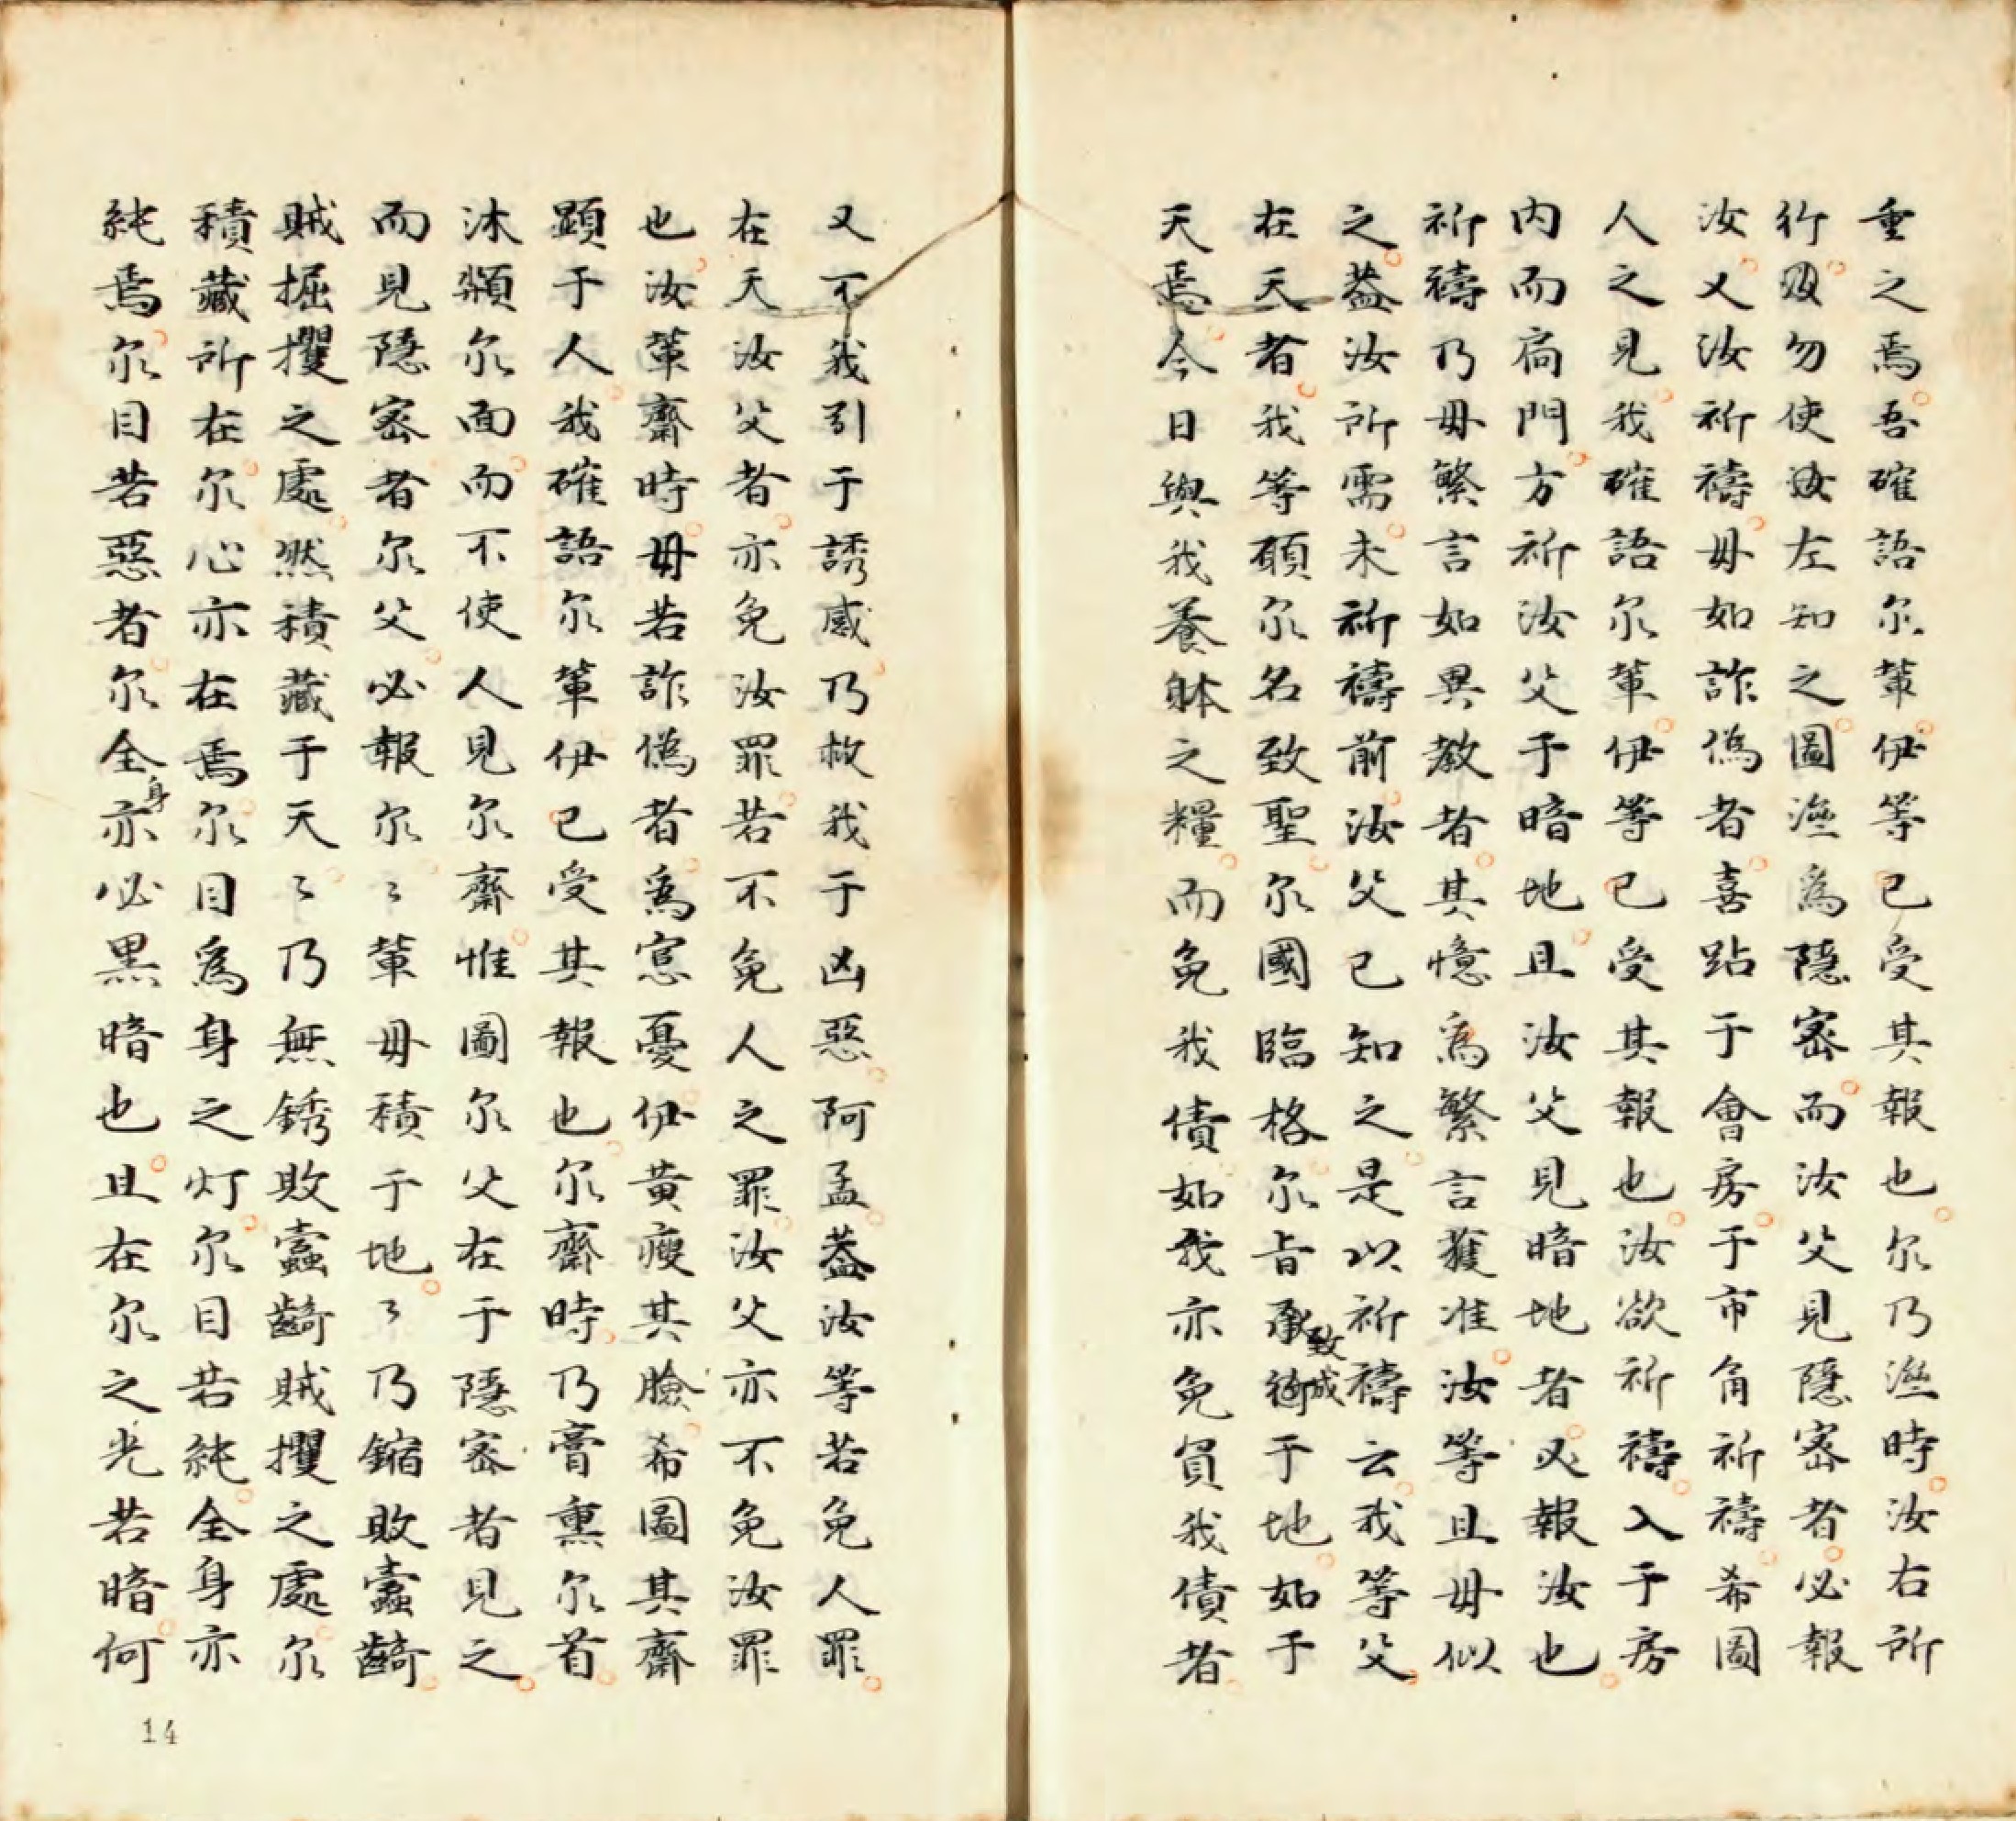 重之焉吾確語尔輩伊等已受其報也尔乃濟時汝右所
行毋勿使汝左知之圖濟為隱密而汝父見隱密者必報
汝又汝祈禱毋如詐偽者喜跕于會房于市角祈禱希圖
人之見我確語尔輩伊等已受其報也汝欲祈禱入于房
内而扃門方祈汝父于暗地且汝父見暗地者必報汝也
祈禱乃毋繁言如異教者其憶為繁言獲准汝等且毋似
之葢汝所需未祈禱前汝父已知之是以祈禱云我等父
在天者我等願尔名致聖尔國臨格尔旨承行于地如于
致成
天焉今日與我養躰之糧而免我債如我亦免負我債者
又不我引于誘感乃救我于凶惡阿孟葢汝等若免人罪
在天汝父者亦免汝罪若不免人之罪汝父亦不免汝罪
也汝輩齋時毋若詐偽者為窓憂伊黄瘦其臉希圖其齋
顕于人我確語尔輩伊已受其報也尔齋時乃膏熏尔首
沐頮尔面而不使人見尔齋惟圖尔父在于隱密者見之
而見隱密者尔父必報尔〻輩毋積于地〻乃鏥敗蠧齮
賊掘攫之處然積藏于天〻乃無銹敗蠧齮賊攫之處尔
積藏所在尔心亦在焉尔目為身之灯尔目若純全身亦
純焉尔目若惡者尔全身亦必黒暗也且在尔之光若暗何
14